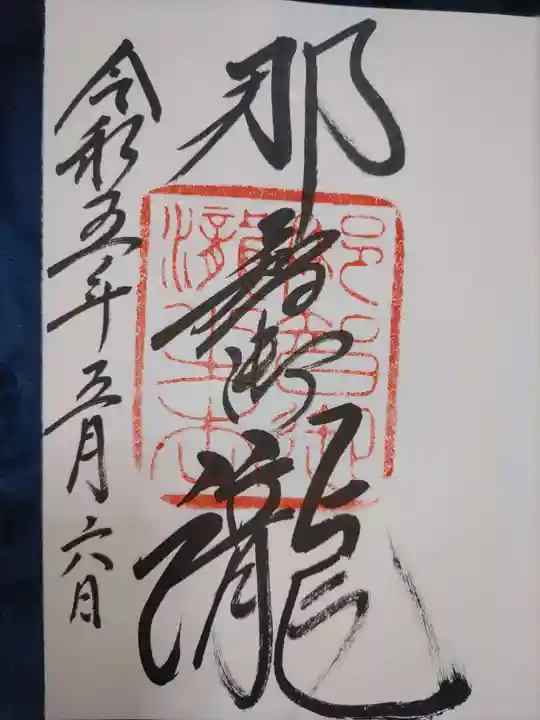 那智御瀧
令和五年五月六日